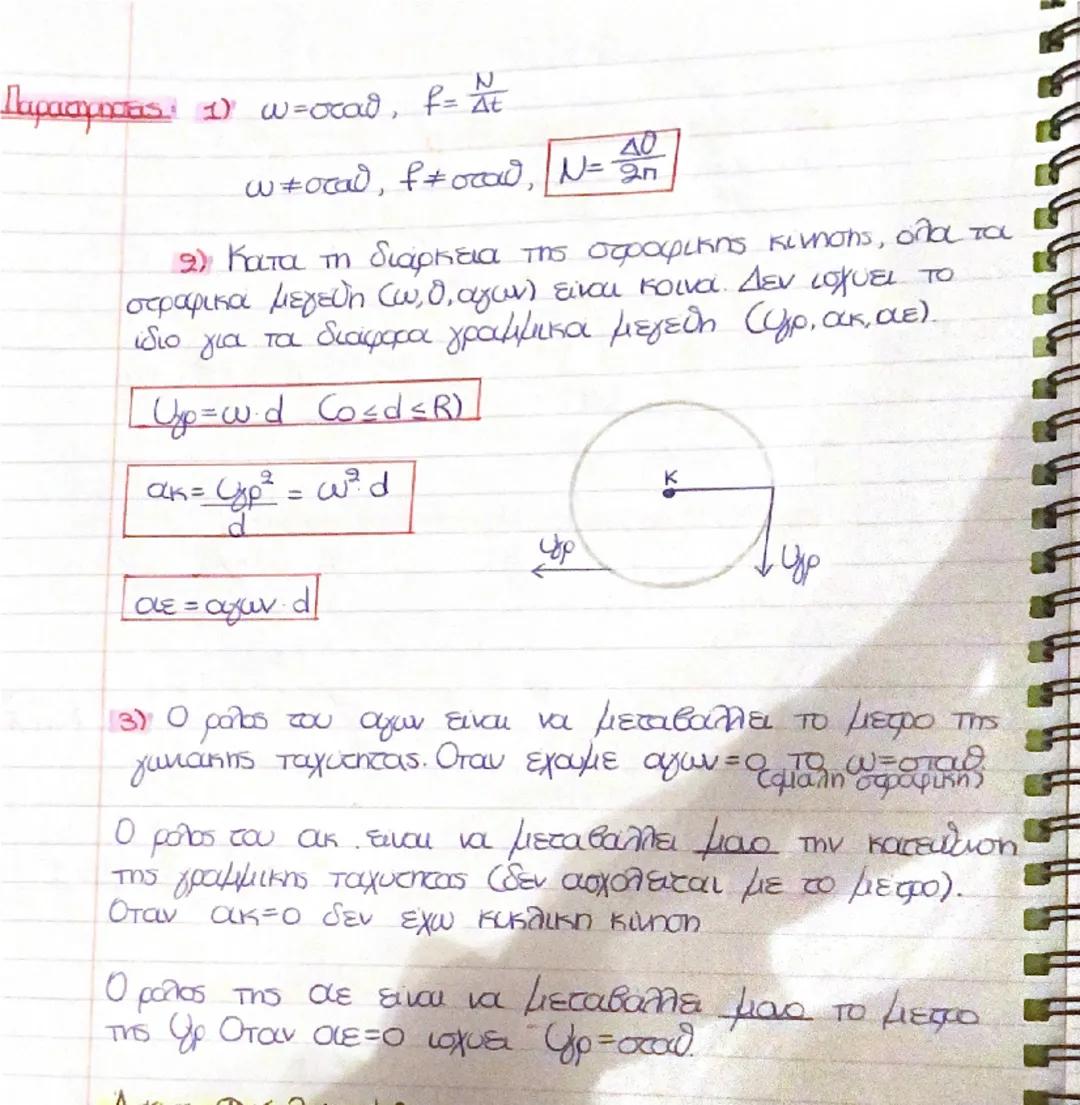 Παρατηρησεις: 1) ω=σταθ, f= N/Δt
ω≠σταθ, f≠σταθ, N= Δθ/2π
2) Κατα τη διάρκεια της στροφικης κινησης, ολα τα
στροφικα μεγεθη (ω, θ, αγων) είναι κοινά. Δεν ισχυει το
ιδιο για τα διαφορα γραμμικα μεγεθη (υγρ, ακ, αε).
υγρ=ω·d (0≤d≤R)
ακ= υγρ²/d = ω²·d
Κ
υγρ
υγρ
αε=αγων·d
3) Ο ρολος του αγων ειναι να μεταβαλλει το μετρο της
γωνιακης ταχυτητας. Οταν εχουμε αγων=0 το ω=σταθ
(ομαλη στροφικη)
Ο ρόλος του ακ ειναι να μεταβαλλει μονο την κατευθυνση
της γραμμικης ταχυτητας (δεν ασχολειται με το μετρο).
Οταν ακ=0 δεν εχω κυκλικη κινηση
Ο ρολος της αε ειναι να μεταβαλλει μονο το μετρο
της υγρ Οταν αε=0 ισχυει υγρ=σταθ.